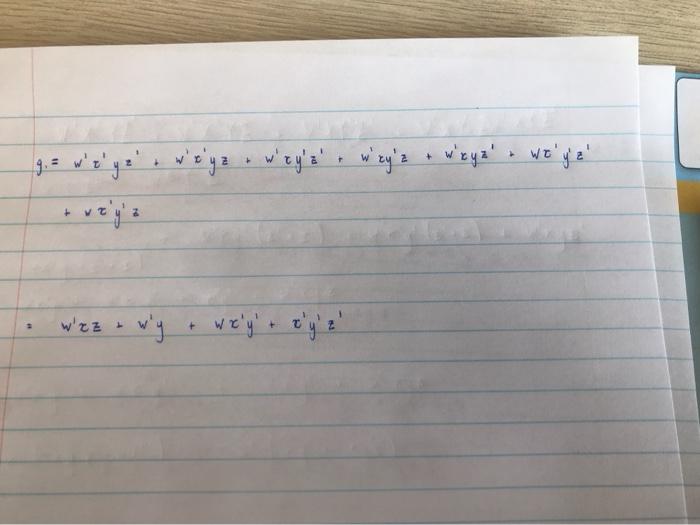 g₁ = w'x'yz' + w'x'yz + w'xy'z' + w'xy'z + w'xyz' + wx'y'z'
+ wx'y'z
= w'xz + w'y + wx'y' + x'y'z'